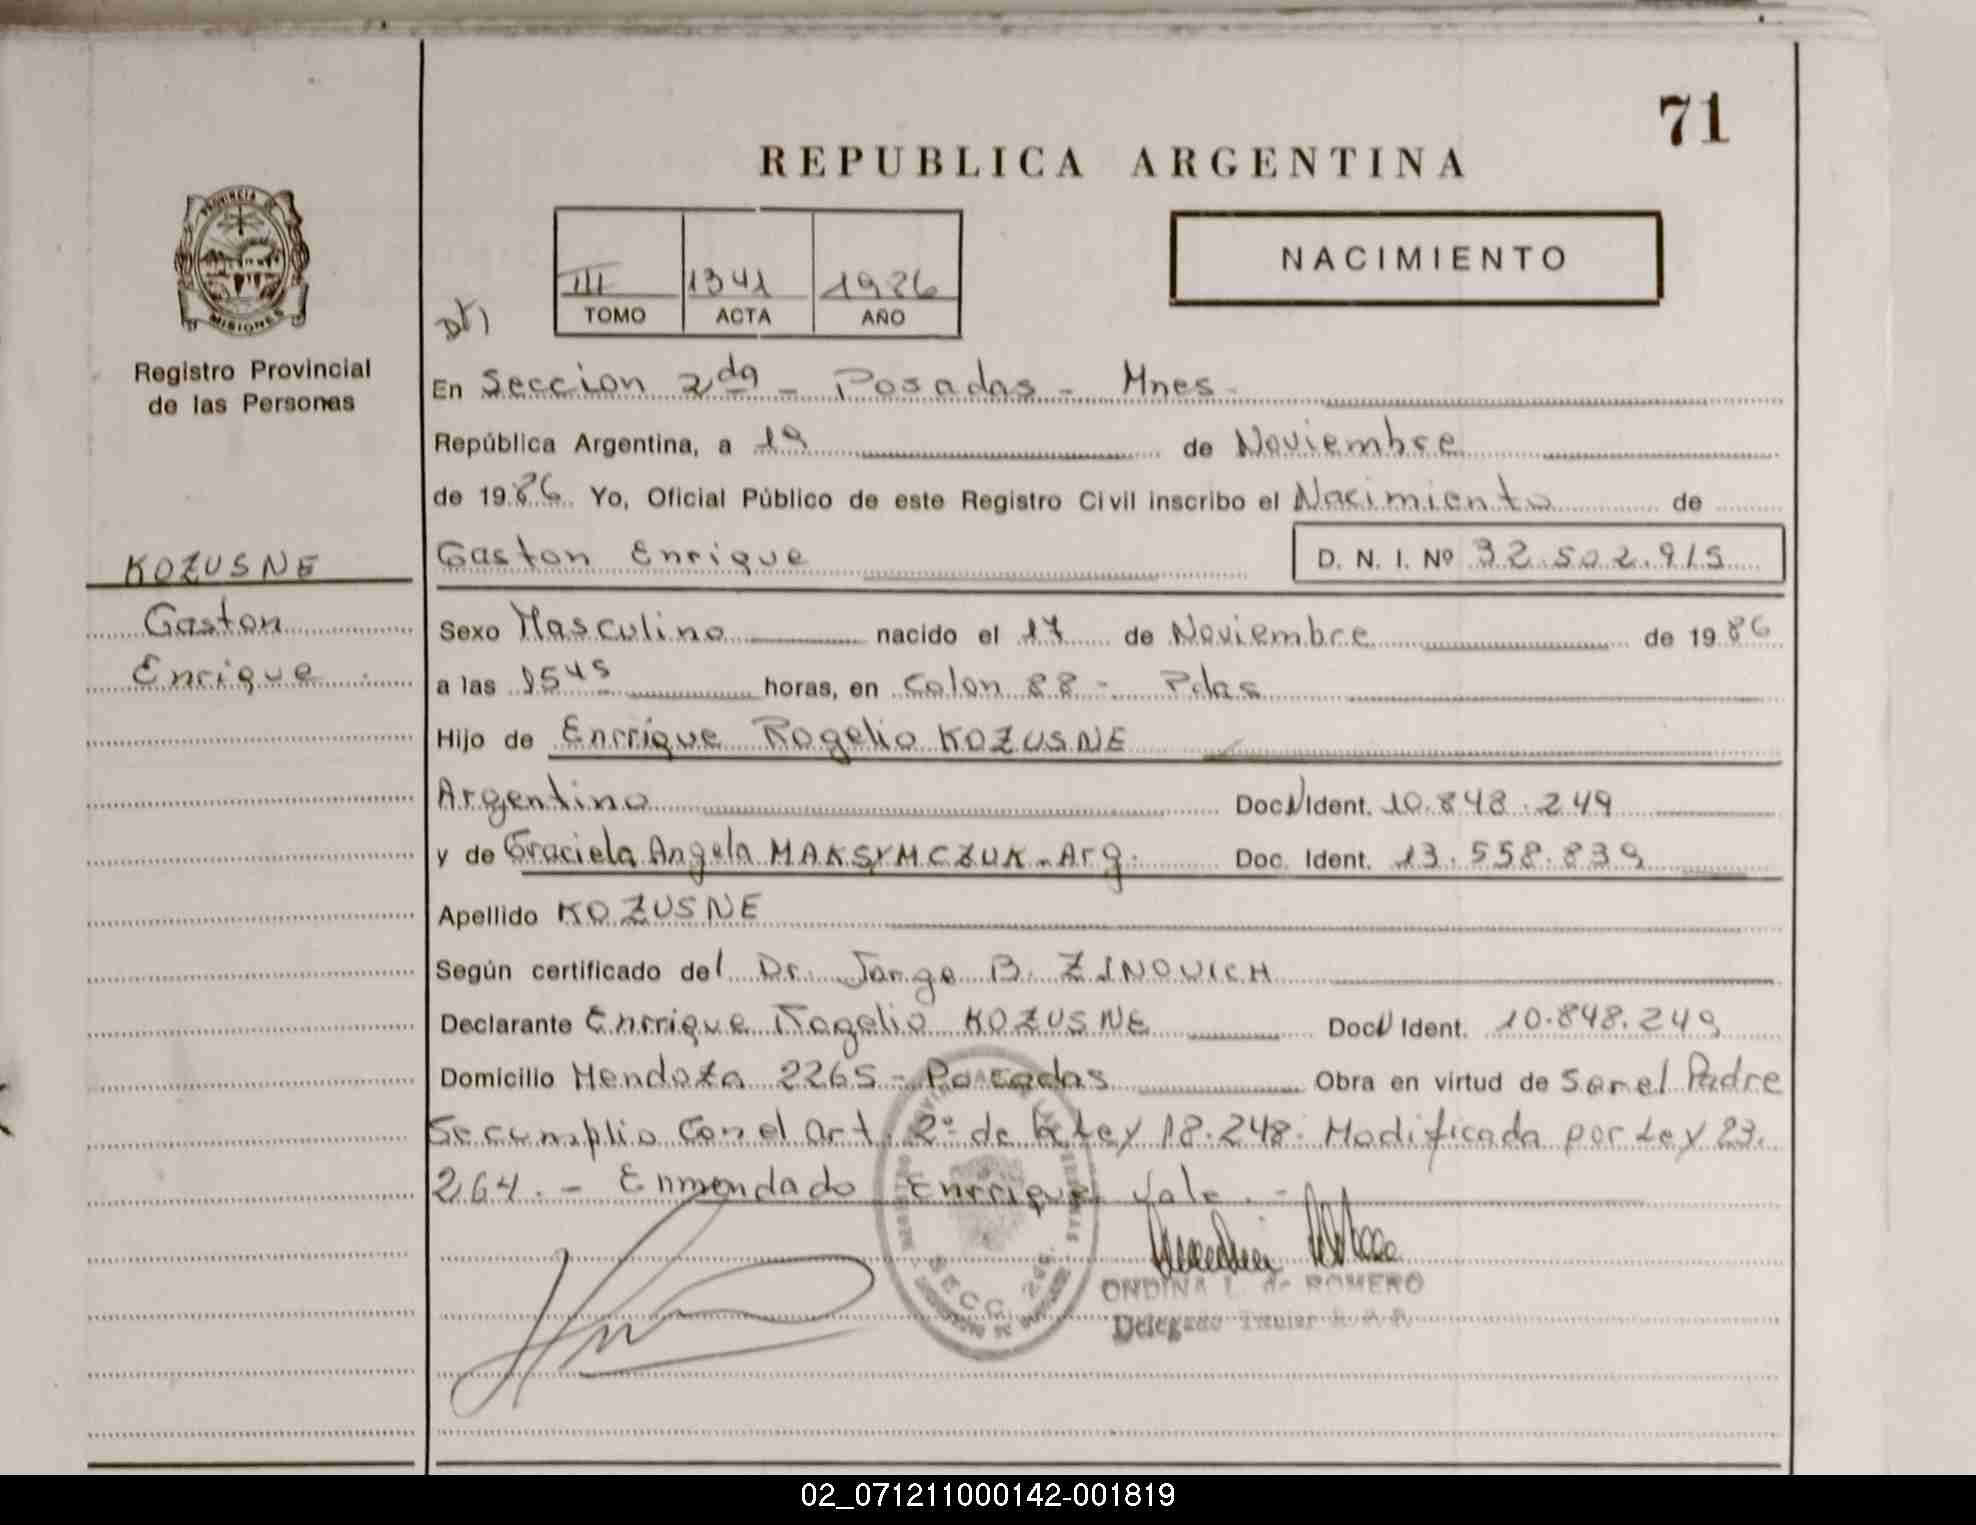 71
REPUBLICA ARGENTINA
NACIMIENTO
III 1341 1986
TOMO ACTA AÑO
PROVINCIA DE
MISIONES
Registro Provincial
de las Personas
En Seccion 2da - Posadas - Mnes -
República Argentina, a 19 de Noviembre
de 1986 Yo, Oficial Público de este Registro Civil inscribo el Nacimiento de
KOZUSNE
Gaston Enrique D. N. I. Nº 32.502.915
Gaston
Enrique
Sexo Masculino nacido el 17 de Noviembre de 1986
a las 1545 horas, en Colon 88 - Pdas
Hijo de Enrrique Rogelio KOZUSNE
Argentino Doc. Ident. 10.848.249
y de Graciela Angela MAKSYMCZUK - Arg. Doc. Ident. 13.558.839
Apellido KOZUSNE
Según certificado del Dr. Jorge B. ZINOVICH
Declarante Enrrique Rogelio KOZUSNE Doc Ident. 10.848.249
Domicilio Mendoza 2265 - Posadas Obra en virtud de Ser el Padre
Se cumplio Con el art. 2º de la Ley 18.248. Modificada por Ley 23.
264. - Enmendado Enrrique vale. -
SECC. 2da.
ONDINA L. de ROMERO
Delegado Titular R. P. P.
02_071211000142-001819